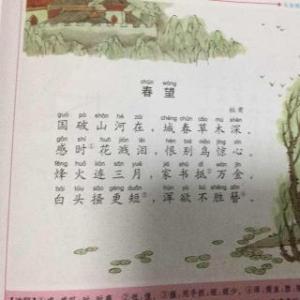 chūn wàng
春 望
杜甫
guó pò shān hé zài chéng chūn cǎo mù shēn
国破山河在，城春草木深。
gǎn shí huā jiàn lèi hèn bié niǎo jīng xīn
感时①花溅泪，恨别鸟惊心。
fēng huǒ lián sān yuè jiā shū dǐ wàn jīn
烽火连三月，家书抵②万金。
bái tóu sāo gèng duǎn hún yù bú shèng zān
白头搔更短③，浑欲不胜簪④。